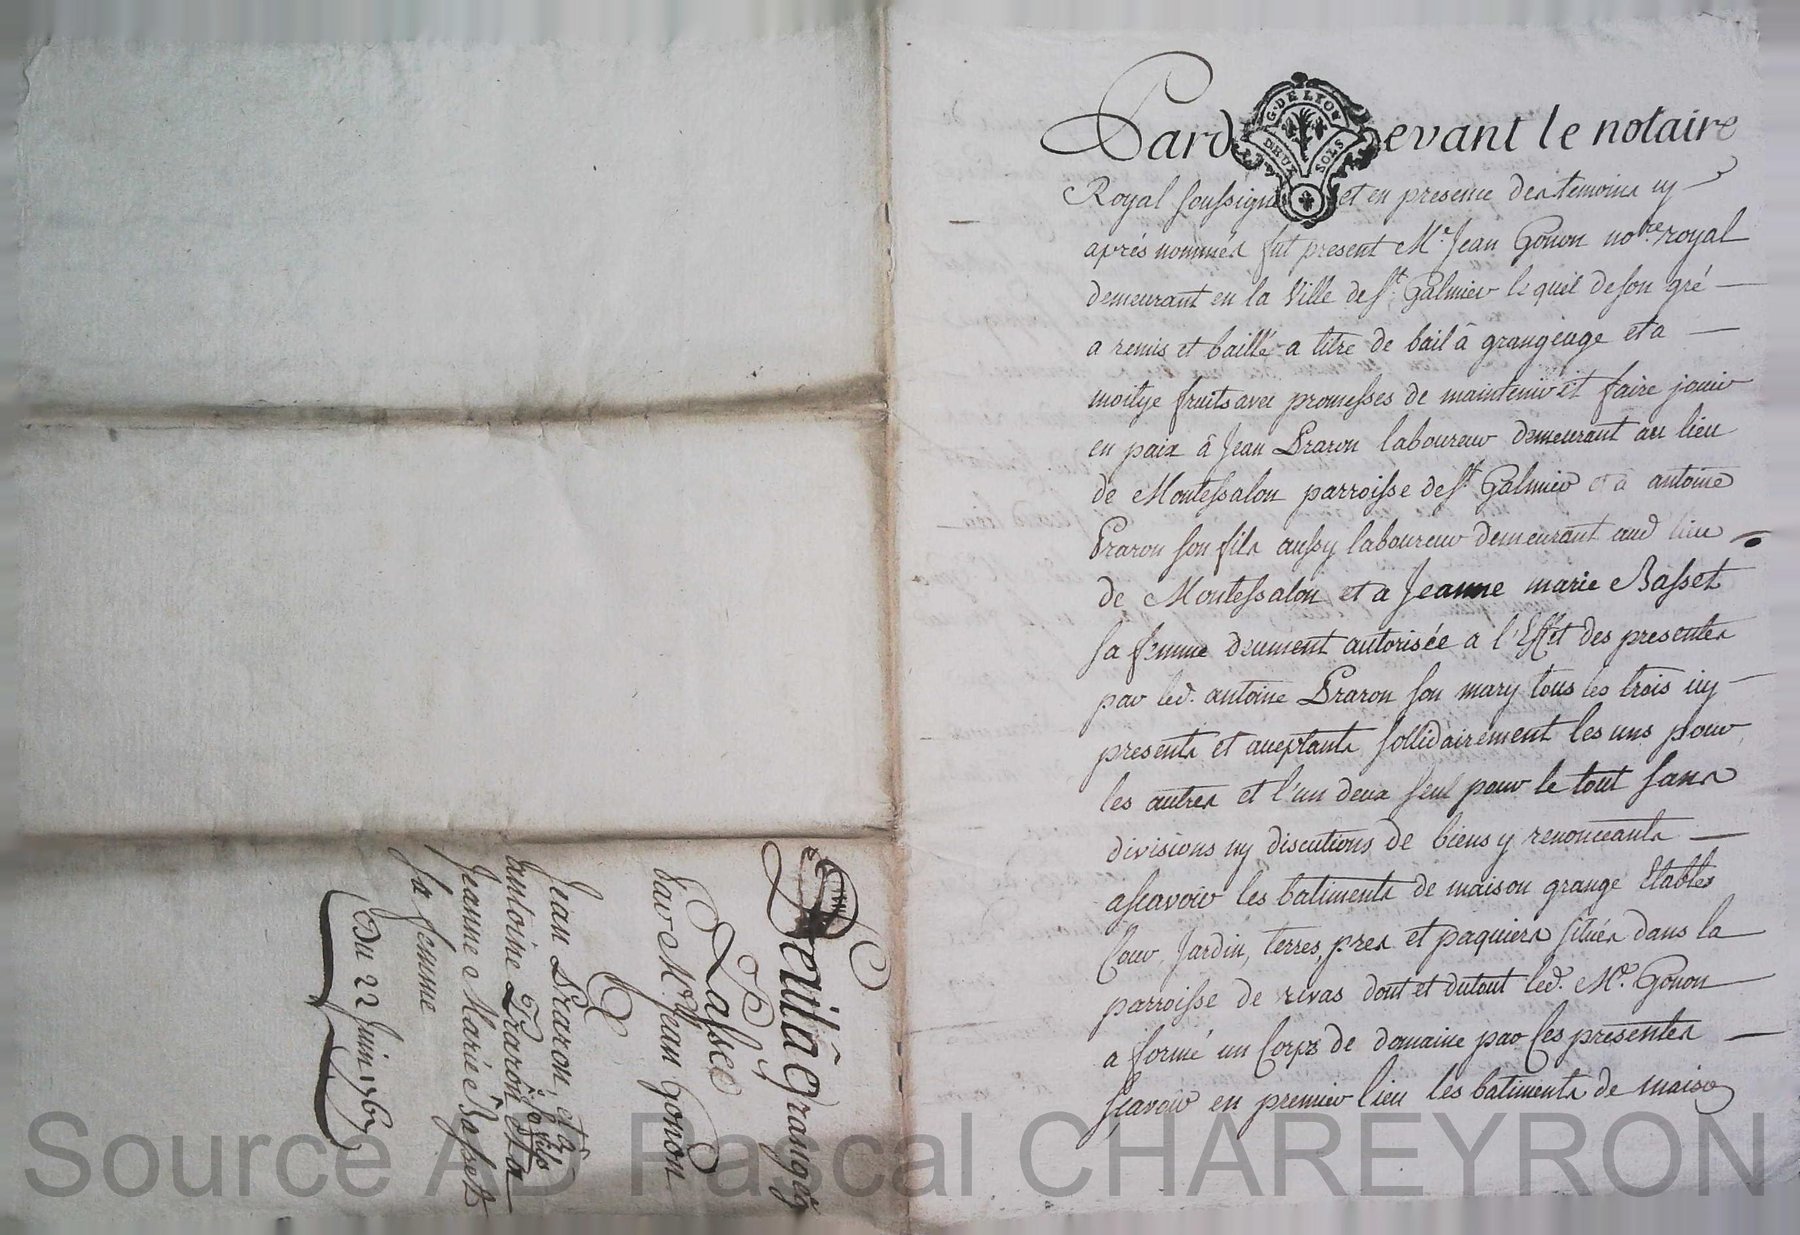 Bail â Grangeage
Passé
Par Me Jean Gonon
A
Jean Praron, et â
antoine Praron son fils et a
Jeanne Marie Basset
sa femme
Du 22 Juin 176
Pard devant le notaire
G. DE LYON
DEUX SOLS
Royal soussigné et en presence des temoins cy
aprés nommés fut present Me. Jean Gonon nore. royal
demeurant en la Ville de St. Galmier lequel de son gré
a remis et baillé a titre de bail â grangeage et a
moitye fruits avec promesses de maintenir et faire jouir
en paix â Jean Praron laboureur demeurant au lieu
de Montessalon parroisse de St. Galmier et â antoine
Praron son fils aussy laboureur demeurant aud lieu
de Montessalon et a Jeanne marie Basset
sa femme deument autorisée a l'Effet des presentes
par led. antoine Praron son mary tous les trois icy
presents et aceptants sollidairement les uns pour
les autres et l'un deux seul pour le tout sans
divisions ny discutions de biens y renonceants
ascavoir les batiments de maison grange Etables
Cour, Jardin, terres, pres et paquiers situés dans la
parroisse de rivas dont et dutout led. Me. Gonon
a formé un Corps de domaine par ces presentes
scavoir en premier lieu les batiments de maison
Source AD Pascal CHAREYRON